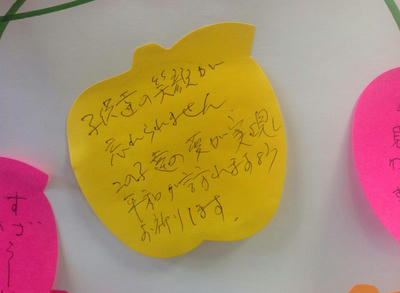 子供達の笑顔が
忘れられません
この子達の夢が実現し
平和が訪れますよう
お祈りします。
すざらし